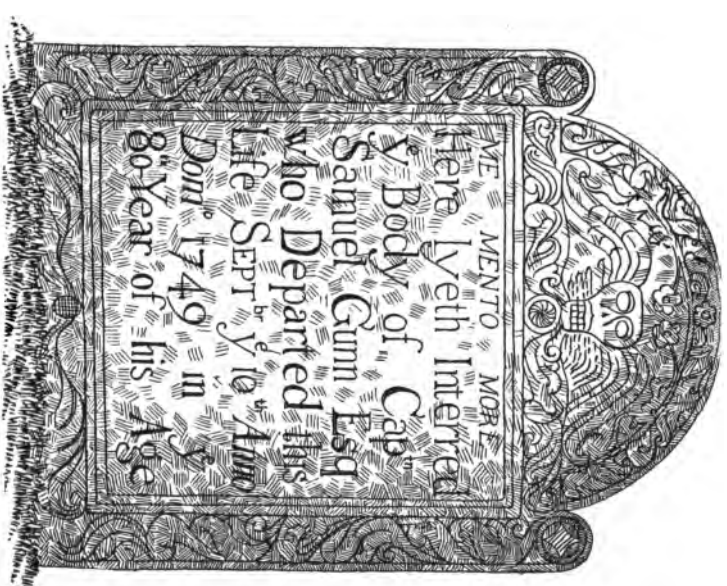 ME MENTO MORE
Here lyeth Interred
yᵉ Body of Capᵗⁿ
Samuel Gunn Esq
who Departed this
Life SEPTᵇʳ yᵉ 10ᵗʰ Anno
Domⁱ 1749 in yᵉ
80ᵗʰ Year of his Age